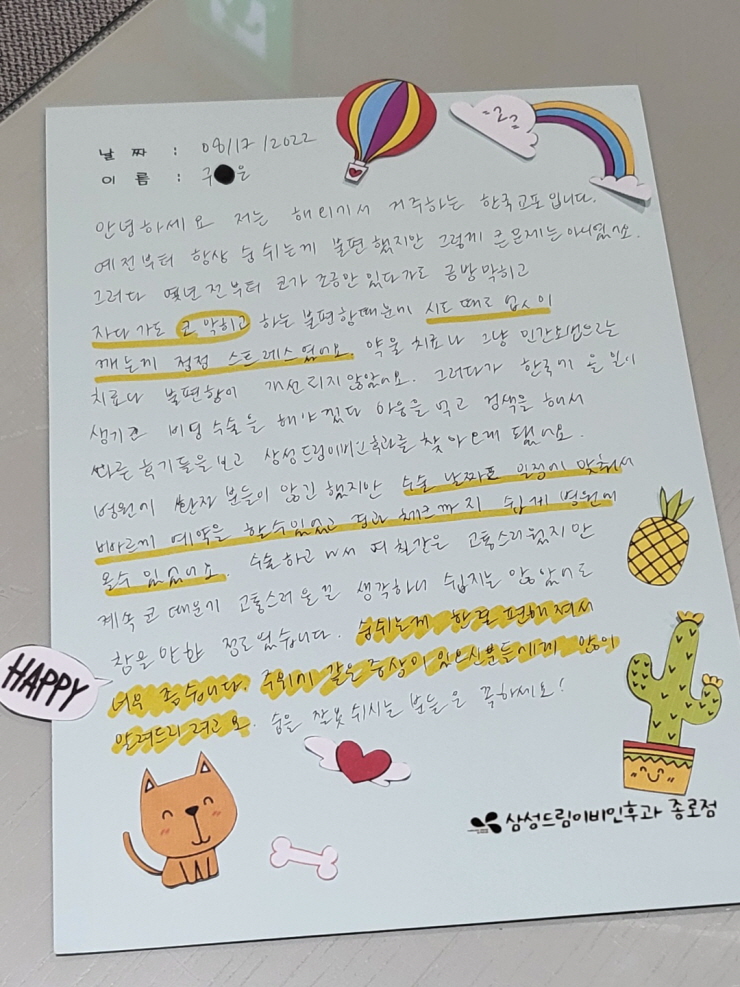 날 짜 : 08/17/2022
이 름 : 구●운
안녕하세요 저는 해외에서 거주하는 한국교포입니다.
예전부터 항상 숨쉬는게 불편했지만 그렇게 큰문제는아니였어요.
그러다 몇년전부터 코가 조금만 있다가도 금방막히고
자다가도 코 막히고 하는 불편함때문에 시도 때도 없이
깨는게 점점 스트레스였어요. 약물치료나 그냥 민간요법으로는
치료나 불편함이 개선되지않았어요. 그러다가 한국에 올 일이
생기면 비염수술을 해야겠다 마음을 먹고 검색을 해서
다른 후기들을 보고 삼성드림이비인후과를 찾아오게 됐어요.
병원에 환자 분들이 많긴 했지만 수술 날짜도 일정에 맞춰서
빠르게 예약을 할수있었고 경과 체크까지 쉽게 병원에
올수 있었어요. 수술하고 나서 며칠간은 고통스러웠지만
계속 코 때문에 고통스러울걸 생각하니 쉽지는 않았어도
참을만한 정도였습니다. 숨쉬는게 한결 편해져서
너무 좋습니다. 주위에 같은증상이 있으신분들에게 많이
알려드리려고요. 숨을 잘못쉬시는 분들은 꼭하세요!
HAPPY
삼성드림이비인후과 종로점